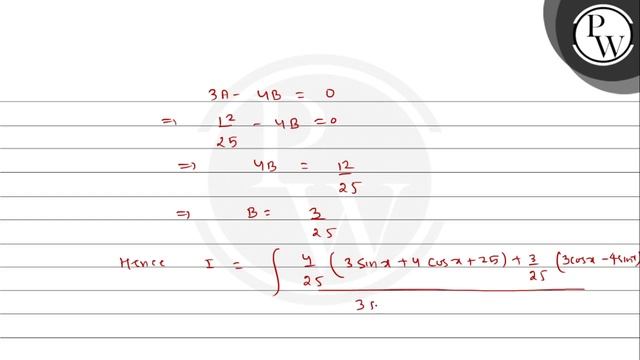 PW
3A - 4B = 0
⇒ 12/25 - 4B = 0
⇒ 4B = 12/25
⇒ B = 3/25
Hence I = ∫ 4/25 (3 sinx + 4 cosx + 25) + 3/25 (3cosx - 4sinx)
3s